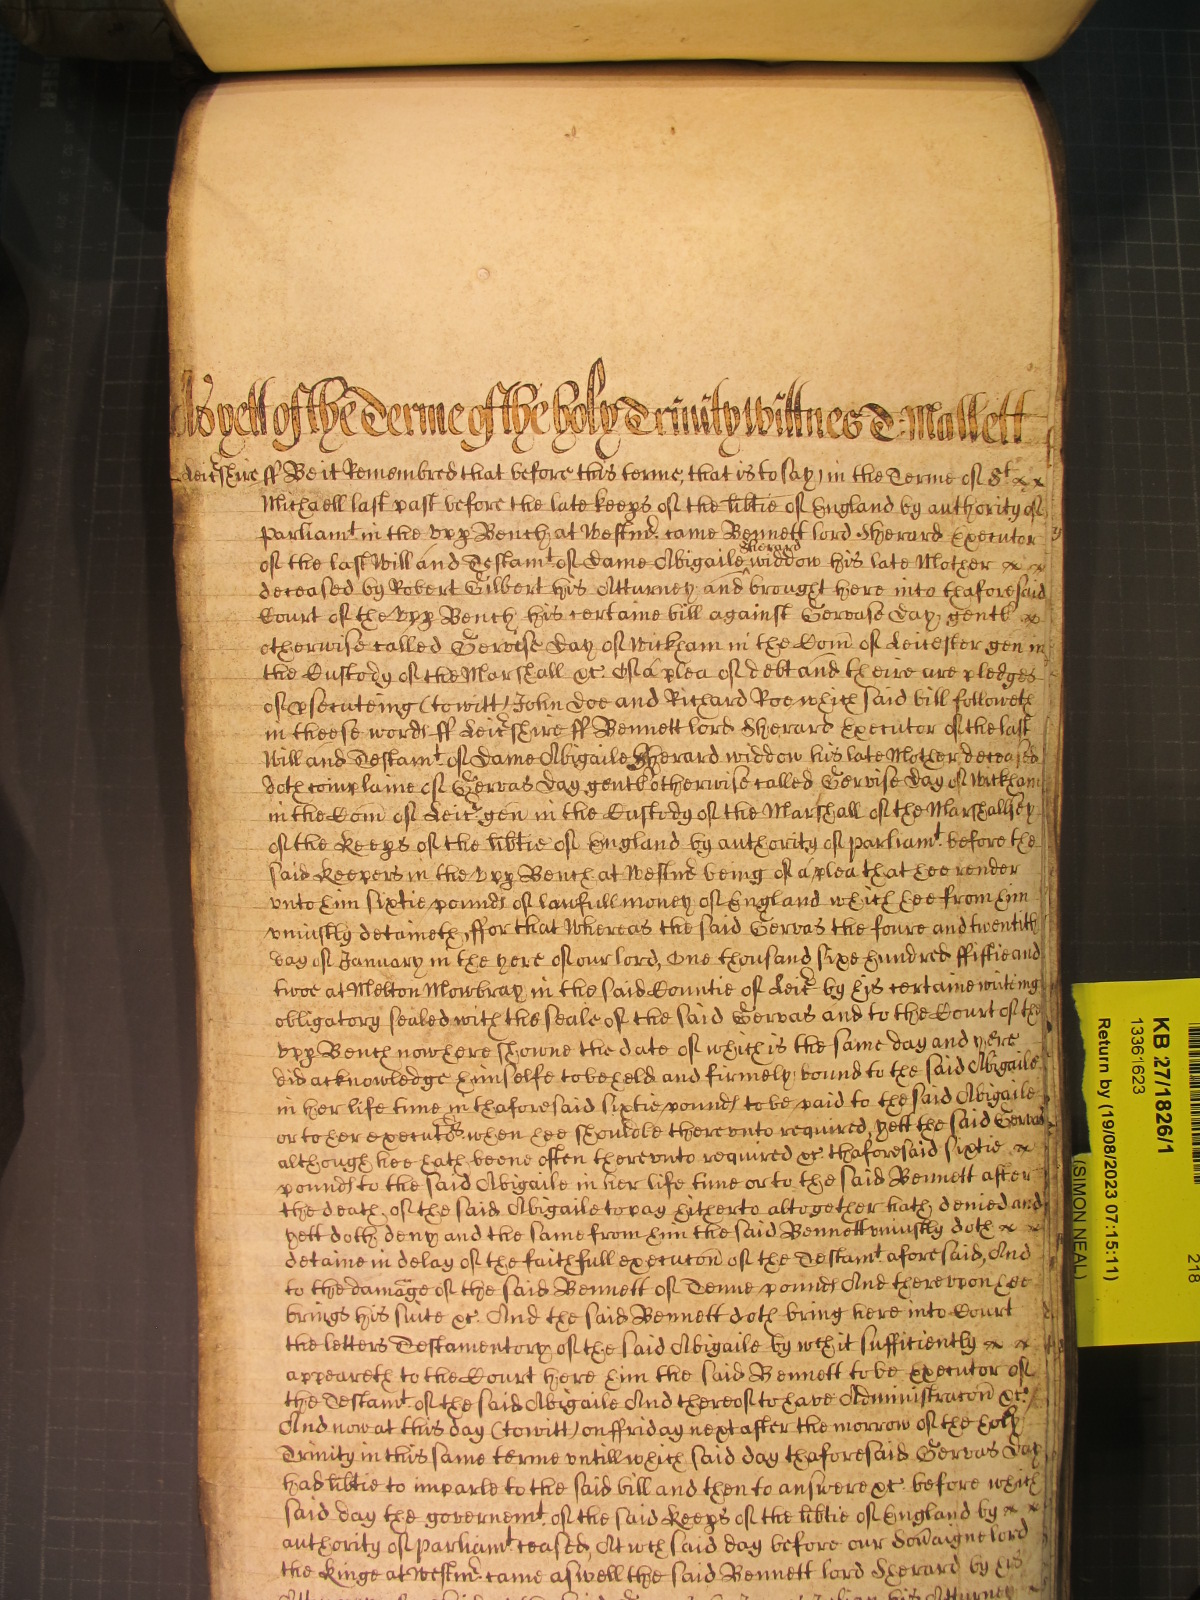 As yett of the Terme of the holy Trinity Wittnes T: Mallett
Leicr shire ss Be it Remembred that before this terme, that is to say, in the Terme of St
Michaell last past before the late keeps of the libtie of England by authority of
parliamt in the vpp Bench at Westmr. came Bennett lord Sherard Executor
of the last Will and Testamt of Dame Abigaile Sherard widdow his late Mother
deceased by Robert Gilbert his Atturney and brought here into thaforesaid
Court of the vpp Bench his certaine bill against Gervase Day gentl
otherwise called Gervise Day of Wickham in the Com of Leicester gen in
the Custody of the Marshall &c. Of a plea of debt and theire are pledges
of psecuteing (to witt) John Doe and Richard Roe which said bill followeth
in theese words ss Leicr shire ss Bennett lord Sherard Executor of the last
Will and Testamt. of Dame Abigaile Sherard widdow his late Mother deceased
doth complaine of Gervas Day gentl otherwise called Gervise Day of Wickham
in the Com of Leicr. gen in the Custody of the Marshall of the Marshallsey
of the Keeps of the libtie of England by authority of parliamt. before the
said Keepers in the vpp Bench at Westmr being of a plea that hee render
vnto him sixtie pounds of lawfull money of England which hee from him
vniustly deteineth, ffor that Whereas the said Gervas the foure and twentith
day of January in the yere of our lord, One thousand sixe hundred ffiftie and
twoe at Melton Mowbray in the said Countie of Leicr by his certaine writing
obligatory sealed with the seale of the said Gervas and to the Court of the
vpp Bench now here showne the date of which is the same day and yere
did acknowledge himselfe to be held and firmely bound to the said Abigaile
in her life time in thaforesaid sixtie pounds to be paid to the said Abigaile
or to her executors when hee should be therevnto required, yett the said Gervas
although hee hath beene often therevnto required &c. thaforesaid sixtie
pounds to the said Abigaile in her life time or to the said Bennett after
the death of the said Abigaile to pay hitherto altogether hath denied and
yett doth deny and the same from him the said Bennett vniustly doth
detaine in delay of the faithfull execucon of the Testamt aforesaid, And
to the damage of the said Bennett of Tenne pounds And therevpon hee
brings his suite &c. And the said Bennett doth bring here into Court
the letters Testamentory of the said Abigaile by wch it sufficiently
appeareth to the Court here him the said Bennett to be executor of
the Testamt. of the said Abigaile And thereof to have Administracon &c.
And now at this day (to witt) on ffriday next after the morrow of the holy
Trinity in this same terme vntill which said day thaforesaid Gervas Day
had libtie to imparle to the said bill and then to answere &c. before which
said day the governemt. of the said Keeps of the libtie of England by
authority of parliamt ceased, At wch said day before our soveraigne lord
the Kinge at Westmr. came aswell the said Bennett lord Sherard by his
KB 27/1826/1
13361623
Return by (19/08/2023 07:15:11)
(SIMON NEAL)
218